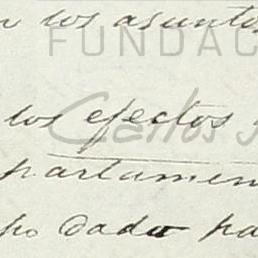 n los asunto
FUNDAC
los efectos
Carlos
partamen
po dado pa